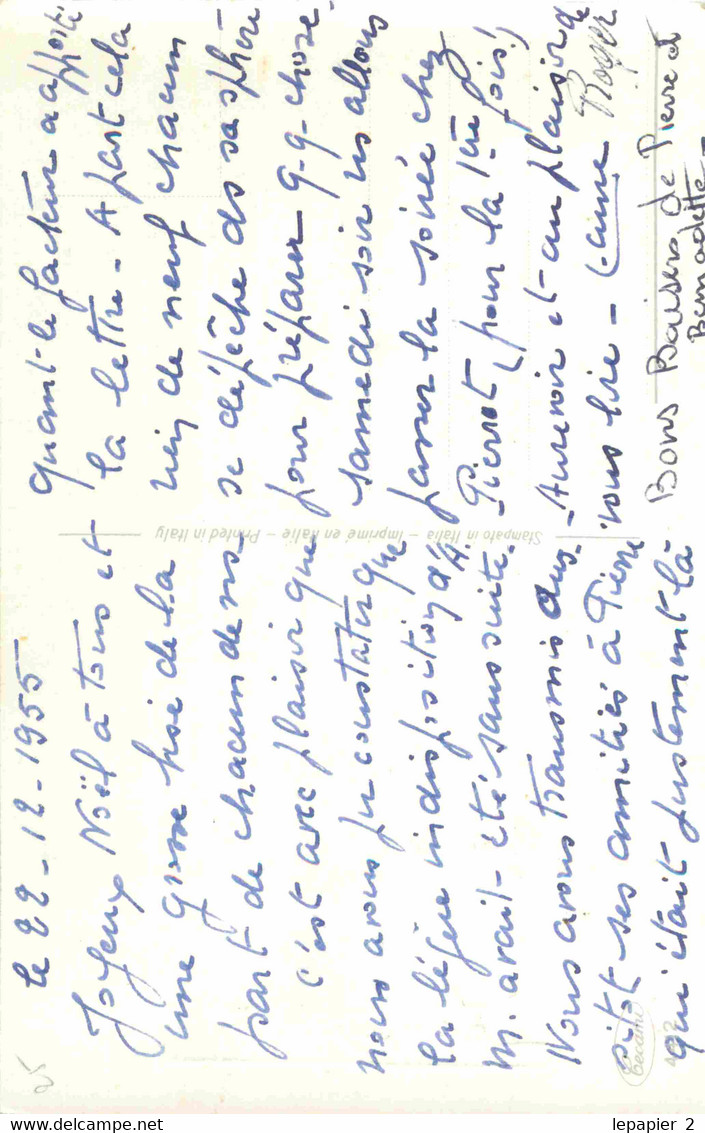 le 22-12-1955
Joyeux Noël à tous et
une grosse bise de la
part de chacun de nous
c'est avec plaisir que
nous avons pu constater que
la légère indisposition d'A.
M. avait été sans suite.
Nous avons transmis aus-
sitôt ses amitiés à Pierre
qui était justement là
quand le facteur a apporté
la lettre - A part cela
rien de neuf chacun
se dépêche ds sa sphère
pour préparer q-q-chose -
samedi soir ns allons
passer la soirée chez
Pierrot (pour la 1ère fois!)
- Aurevoir et au plaisir de
vous lire -
Roger
Bons Baisers de Pierre et
Bernadette -
Stampato in Italia - Imprimé en Italie - Printed in Italy
Cecami
25
lepapier_2